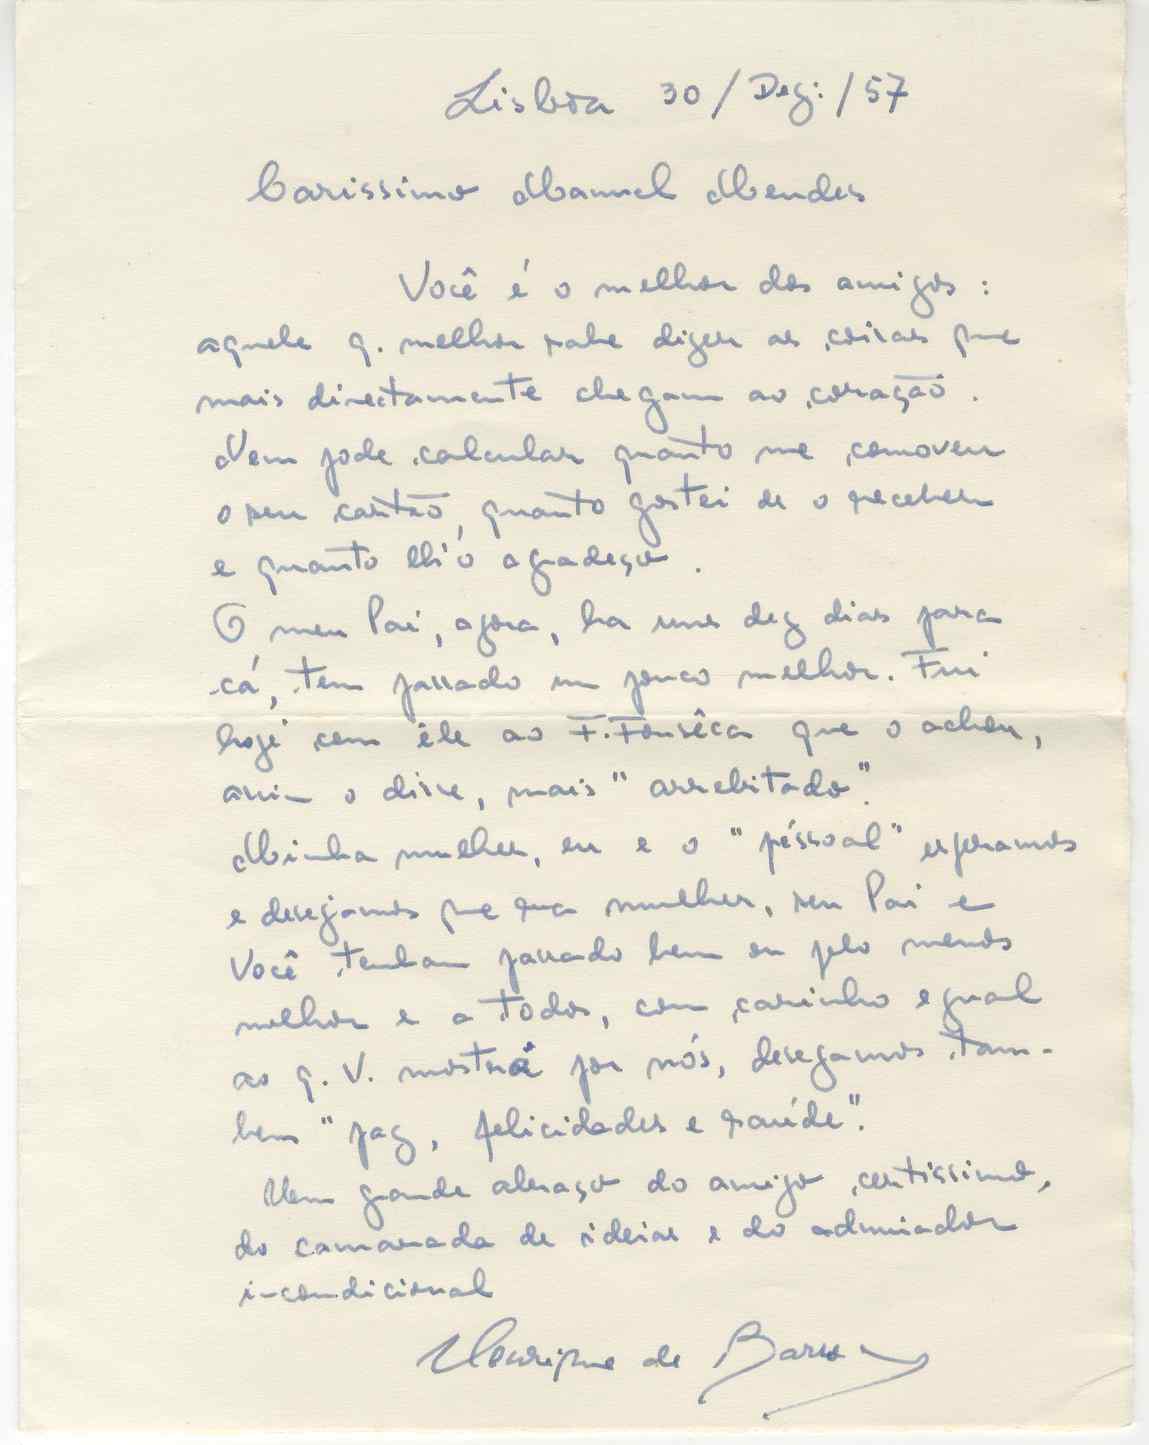 Lisboa 30/Dez:/57
Carissimo Manuel Mendes
Você é o melhor dos amigos:
aquele q. melhor sabe dizer as coisas que
mais directamente chegam ao coração.
Nem pode calcular quanto me comoveu
o seu cartão, quanto gostei de o receber
e quanto lh'o agradeço.
O meu Pai, agora, ha uns dez dias para
cá, tem passado um pouco melhor. Fui
hoje com êle ao F. Fonsêca que o achou,
assim o disse, mais "arrebitado".
Minha mulher, eu e o "péssoal" esperamos
e desejamos que sua mulher, seu Pai e
Você tenham passado bem ou pelo menos
melhor e a todos, com carinho egual
ao q. V. mostra por nós, desejamos tam-
bem "paz, felicidades e saúde".
Um grande abraço do amigo certissimo,
do camarada de ideias e do admirador
incondicional
Henrique de Barros